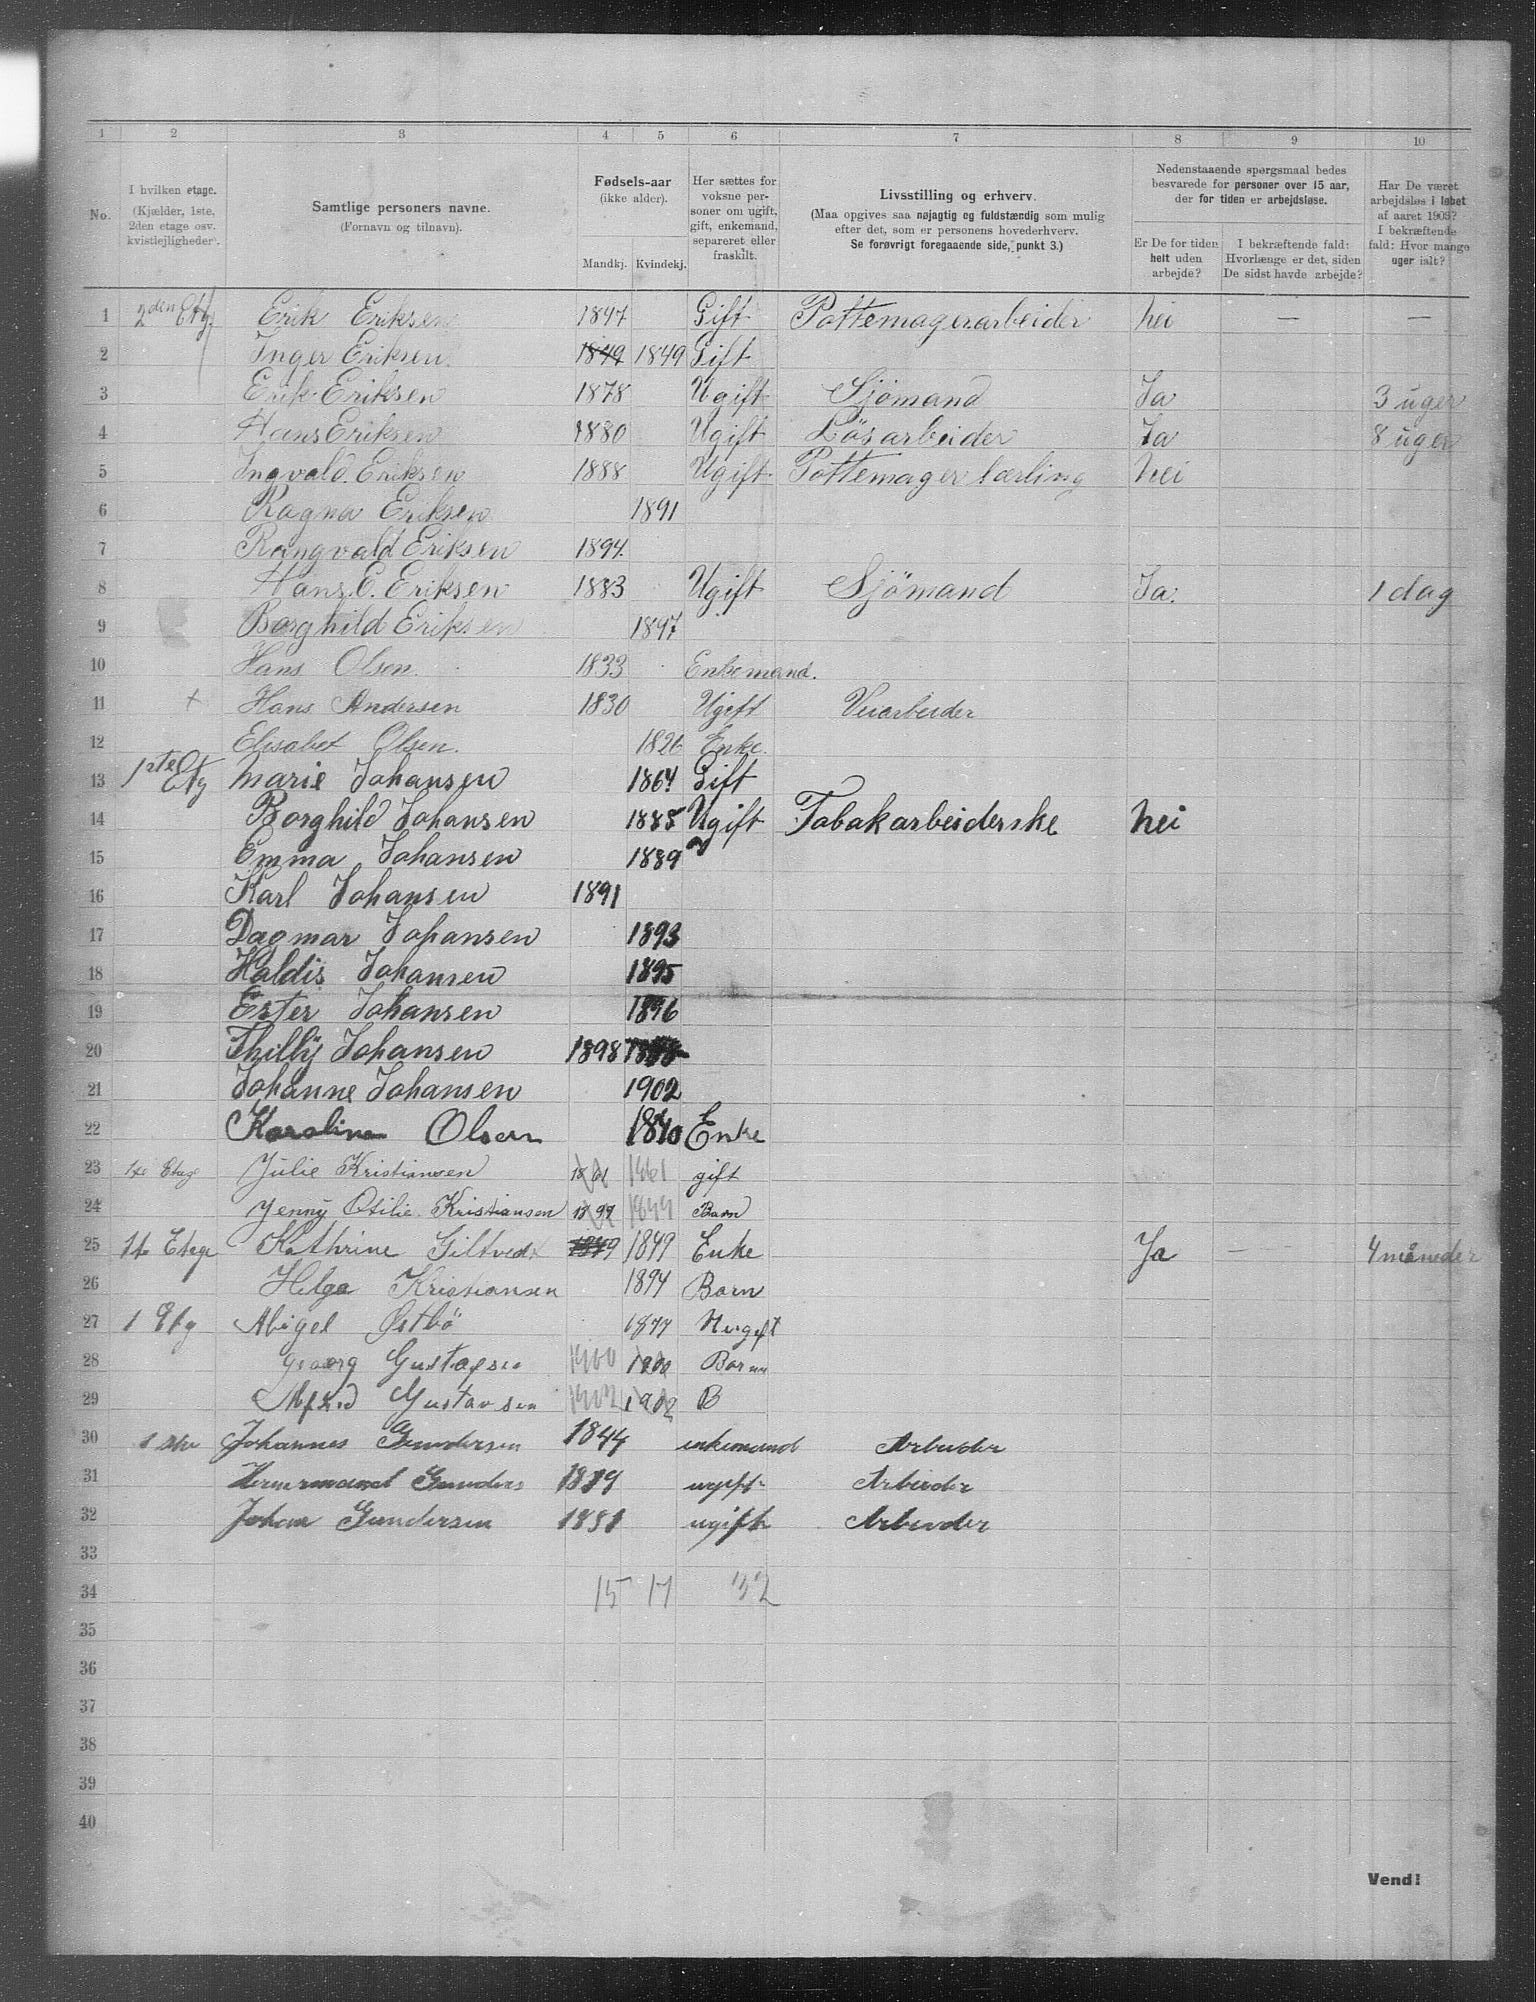 1 2 3 4 5 6 7 8 9 10
No.
I hvilken etage. (Kjælder, 1ste, 2den etage osv. kvistlejligheder).
Samtlige personers navne. (Fornavn og tilnavn).
Fødsels-aar (ikke alder). Mandkj. Kvindekj.
Her sættes for voksne personer om ugift, gift, enkemand, separeret eller fraskilt.
Livsstilling og erhverv. (Maa opgives saa nøjagtig og fuldstændig som mulig efter det, som er personens hovederhverv. Se forøvrigt foregaaende side, punkt 3.)
Nedenstaaende spørgsmaal bedes besvarede for personer over 15 aar, der for tiden er arbejdsløse.
Er De for tiden helt uden arbejde?
I bekræftende fald: Hvorlænge er det, siden De sidst havde arbejde?
Har De været arbejdsløs i løbet af aaret 1903? I bekræftende fald: Hvor mange uger ialt?
1 2den Etg. Erik Eriksen 1847 Gift Pottemagerarbeider Nei — —
2 Inger Eriksen. 1849 1849 Gift
3 Erik Eriksen 1878 Ugift Sjömand Ja 3 uger
4 Hans Eriksen 1880 Ugift Lösarbeider Ja 8 uger
5 Ingvald. Eriksen 1888 Ugift Pottemager lærling Nei
6 Ragna Eriksen 1891
7 Rangvald Eriksen 1894.
8 Hans. E. Eriksen 1883 Ugift Sjömand Ja. 1 dag
9 Borghild Eriksen 1897
10 Hans Olsen. 1833 Enkemand.
11 + Hans Andersen 1830 Ugift Veiarbeider
12 Elisabet Olsen. 1826 Enke.
13 1ste Etg Marie Johansen 1864 Gift
14 Borghild Johansen 1885 Ugift Tabakarbeiderske Nei
15 Emma Johansen 1889 "
16 Karl Johansen 1891
17 Dagmar Johansen 1893
18 Haldis Johansen 1895
19 Ester Johansen 1896
20 Thilly Johansen 1898
21 Johanne Johansen 1902
22 Karoline Olsen 1840 Enke
23 1te Etage Julie Kristiansen 1861 1861 gift
24 Jenny Otilie Kristiansen 1899 1899 Barn
25 1te Etage Kathrine Giltvedt 1849 1849 Enke Ja — 4 måneder
26 Helga Kristiansen 1894 Barn
27 1 Etg Abigel Østbö 1877 Uugift
28 Georg Gustavsen 1900 1900 Barn
29 Alfred Gustavsen 1902 1902 B
30 Johannes Gundersen 1844 enkemand Arbeider
31 Gunders ugift Arbeider
32 Johan Gundersen 1881 ugift Arbeider
33
34 15 17 32
35
36
37
38
39
40
Vend!